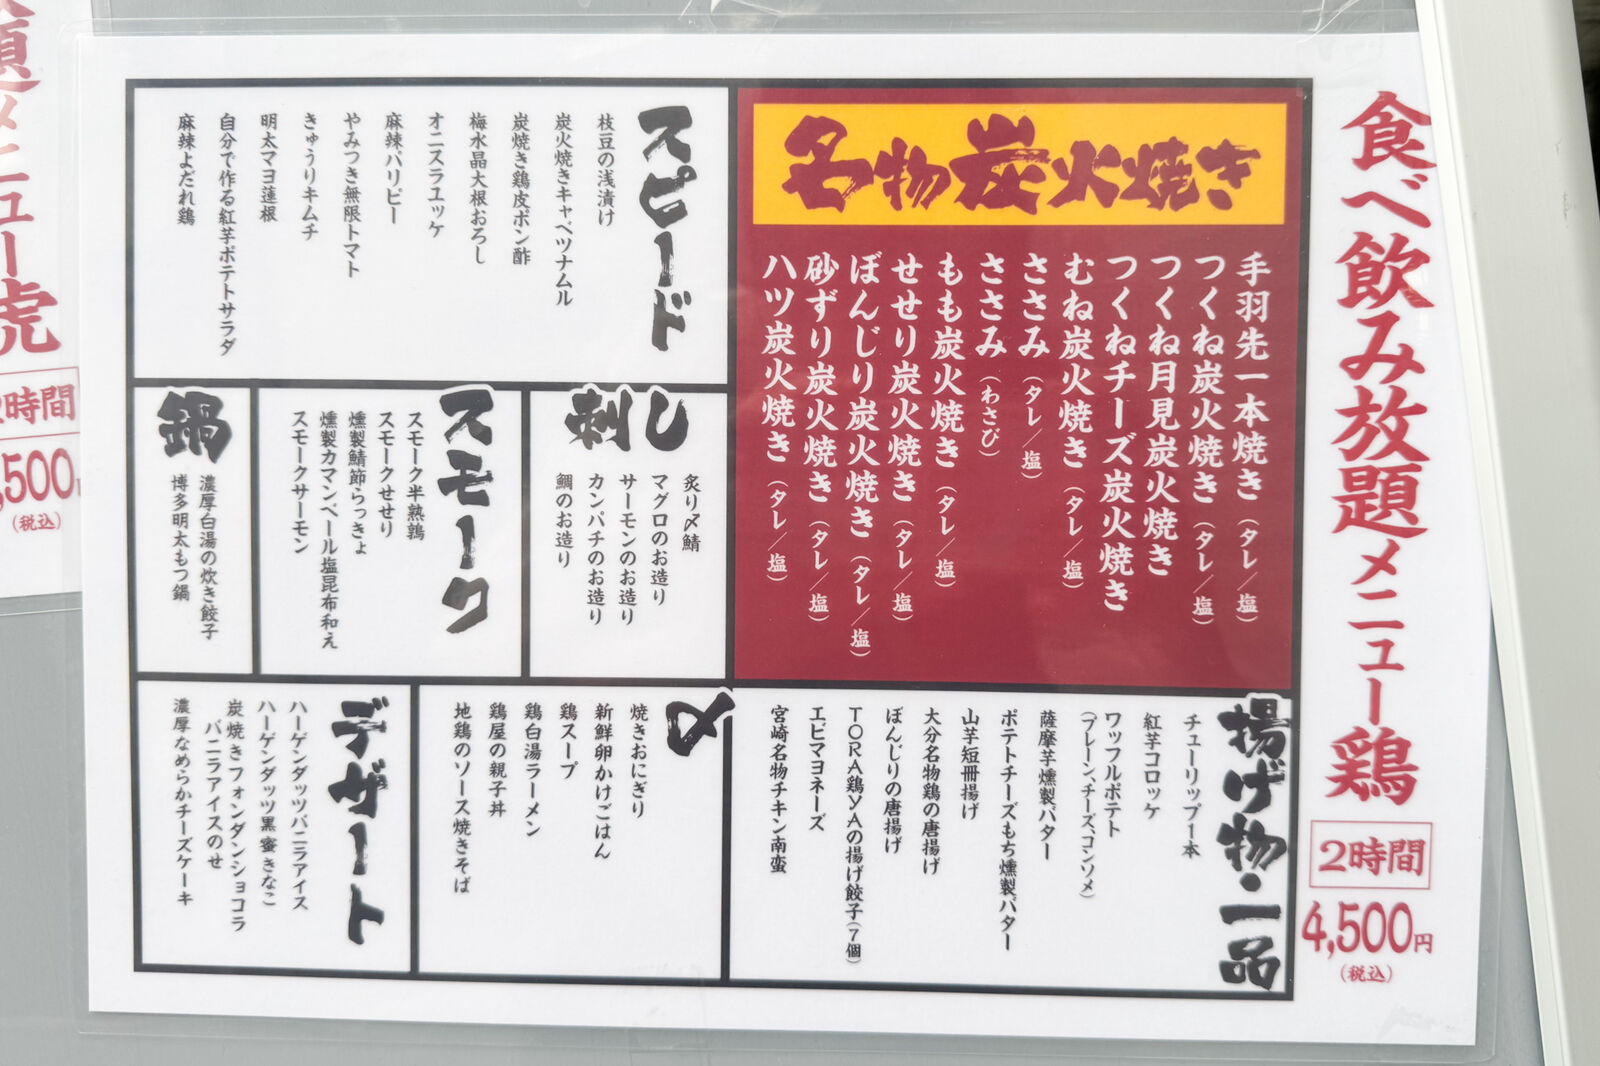 食べ飲み放題メニュー鶏
2時間
4,500円
(税込)
名物炭火焼き
手羽先一本焼き(タレ/塩)
つくね炭火焼き(タレ/塩)
つくね月見炭火焼き
つくねチーズ炭火焼き
むね炭火焼き(タレ/塩)
ささみ(タレ/塩)
ささみ(わさび)
もも炭火焼き(タレ/塩)
せせり炭火焼き(タレ/塩)
ぼんじり炭火焼き(タレ/塩)
砂ずり炭火焼き(タレ/塩)
ハツ炭火焼き(タレ/塩)
スピード
枝豆の浅漬け
炭火焼きキャベツナムル
炭焼き鶏皮ポン酢
梅水晶大根おろし
オニスラユッケ
麻辣パリピー
やみつき無限トマト
きゅうりキムチ
明太マヨ蓮根
自分で作る紅芋ポテトサラダ
麻辣よだれ鶏
刺し
炙り〆鯖
マグロのお造り
サーモンのお造り
カンパチのお造り
鯛のお造り
スモーク
スモーク半熟鶉
スモークせせり
燻製鯖節らっきょ
燻製カマンベール塩昆布和え
スモークサーモン
鍋
濃厚白湯の炊き餃子
博多明太もつ鍋
揚げ物・一品
チューリップ1本
紅芋コロッケ
ワッフルポテト
(プレーン、チーズ、コンソメ)
薩摩芋燻製バター
ポテトチーズもち燻製バター
山芋短冊揚げ
大分名物鶏の唐揚げ
ぼんじりの唐揚げ
TORA鶏YAの揚げ餃子(7個)
エビマヨネーズ
宮崎名物チキン南蛮
〆
焼きおにぎり
新鮮卵かけごはん
鶏スープ
鶏白湯ラーメン
鶏屋の親子丼
地鶏のソース焼きそば
デザート
ハーゲンダッツバニラアイス
ハーゲンダッツ黒蜜きなこ
炭焼きフォンダンショコラ
バニラアイスのせ
濃厚なめらかチーズケーキ
題メニュー虎
2時間
,500
(税込)